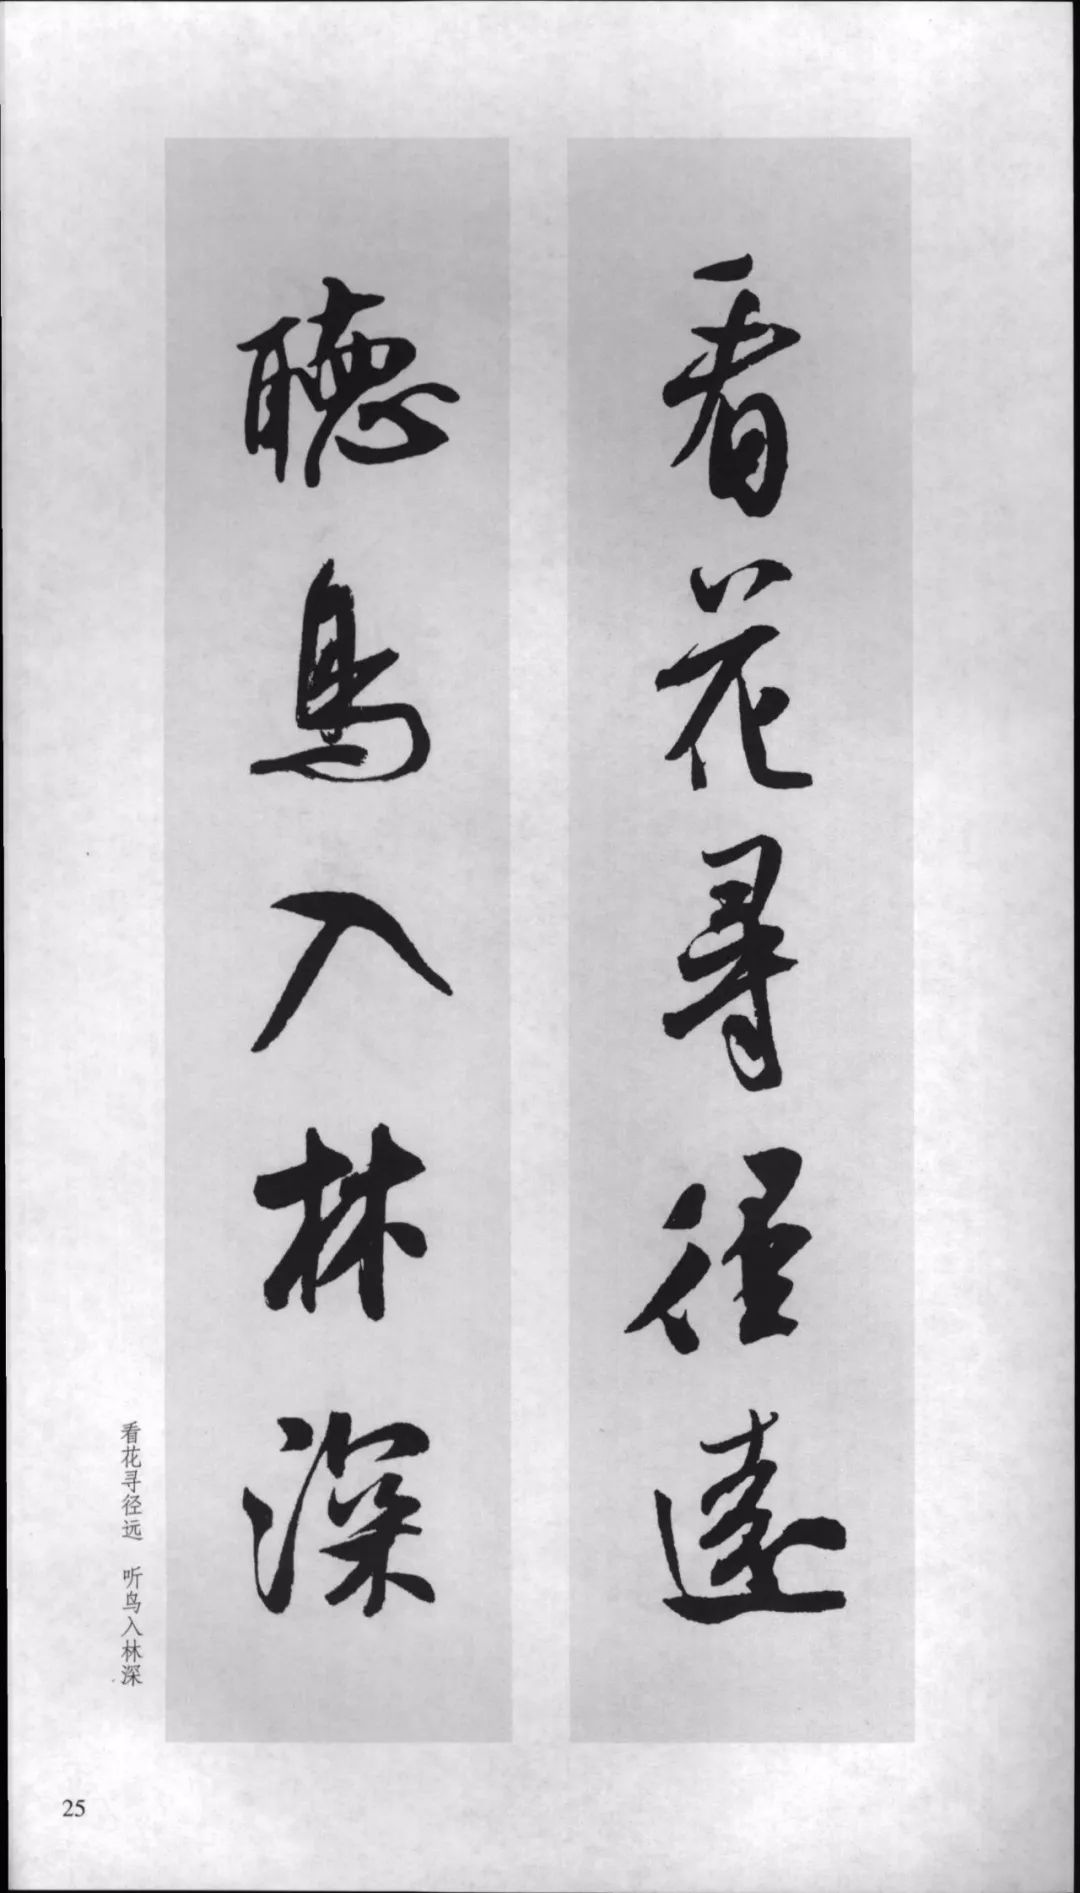 看花寻径遠
聽鳥入林深
看花寻径远 听鸟入林深
25